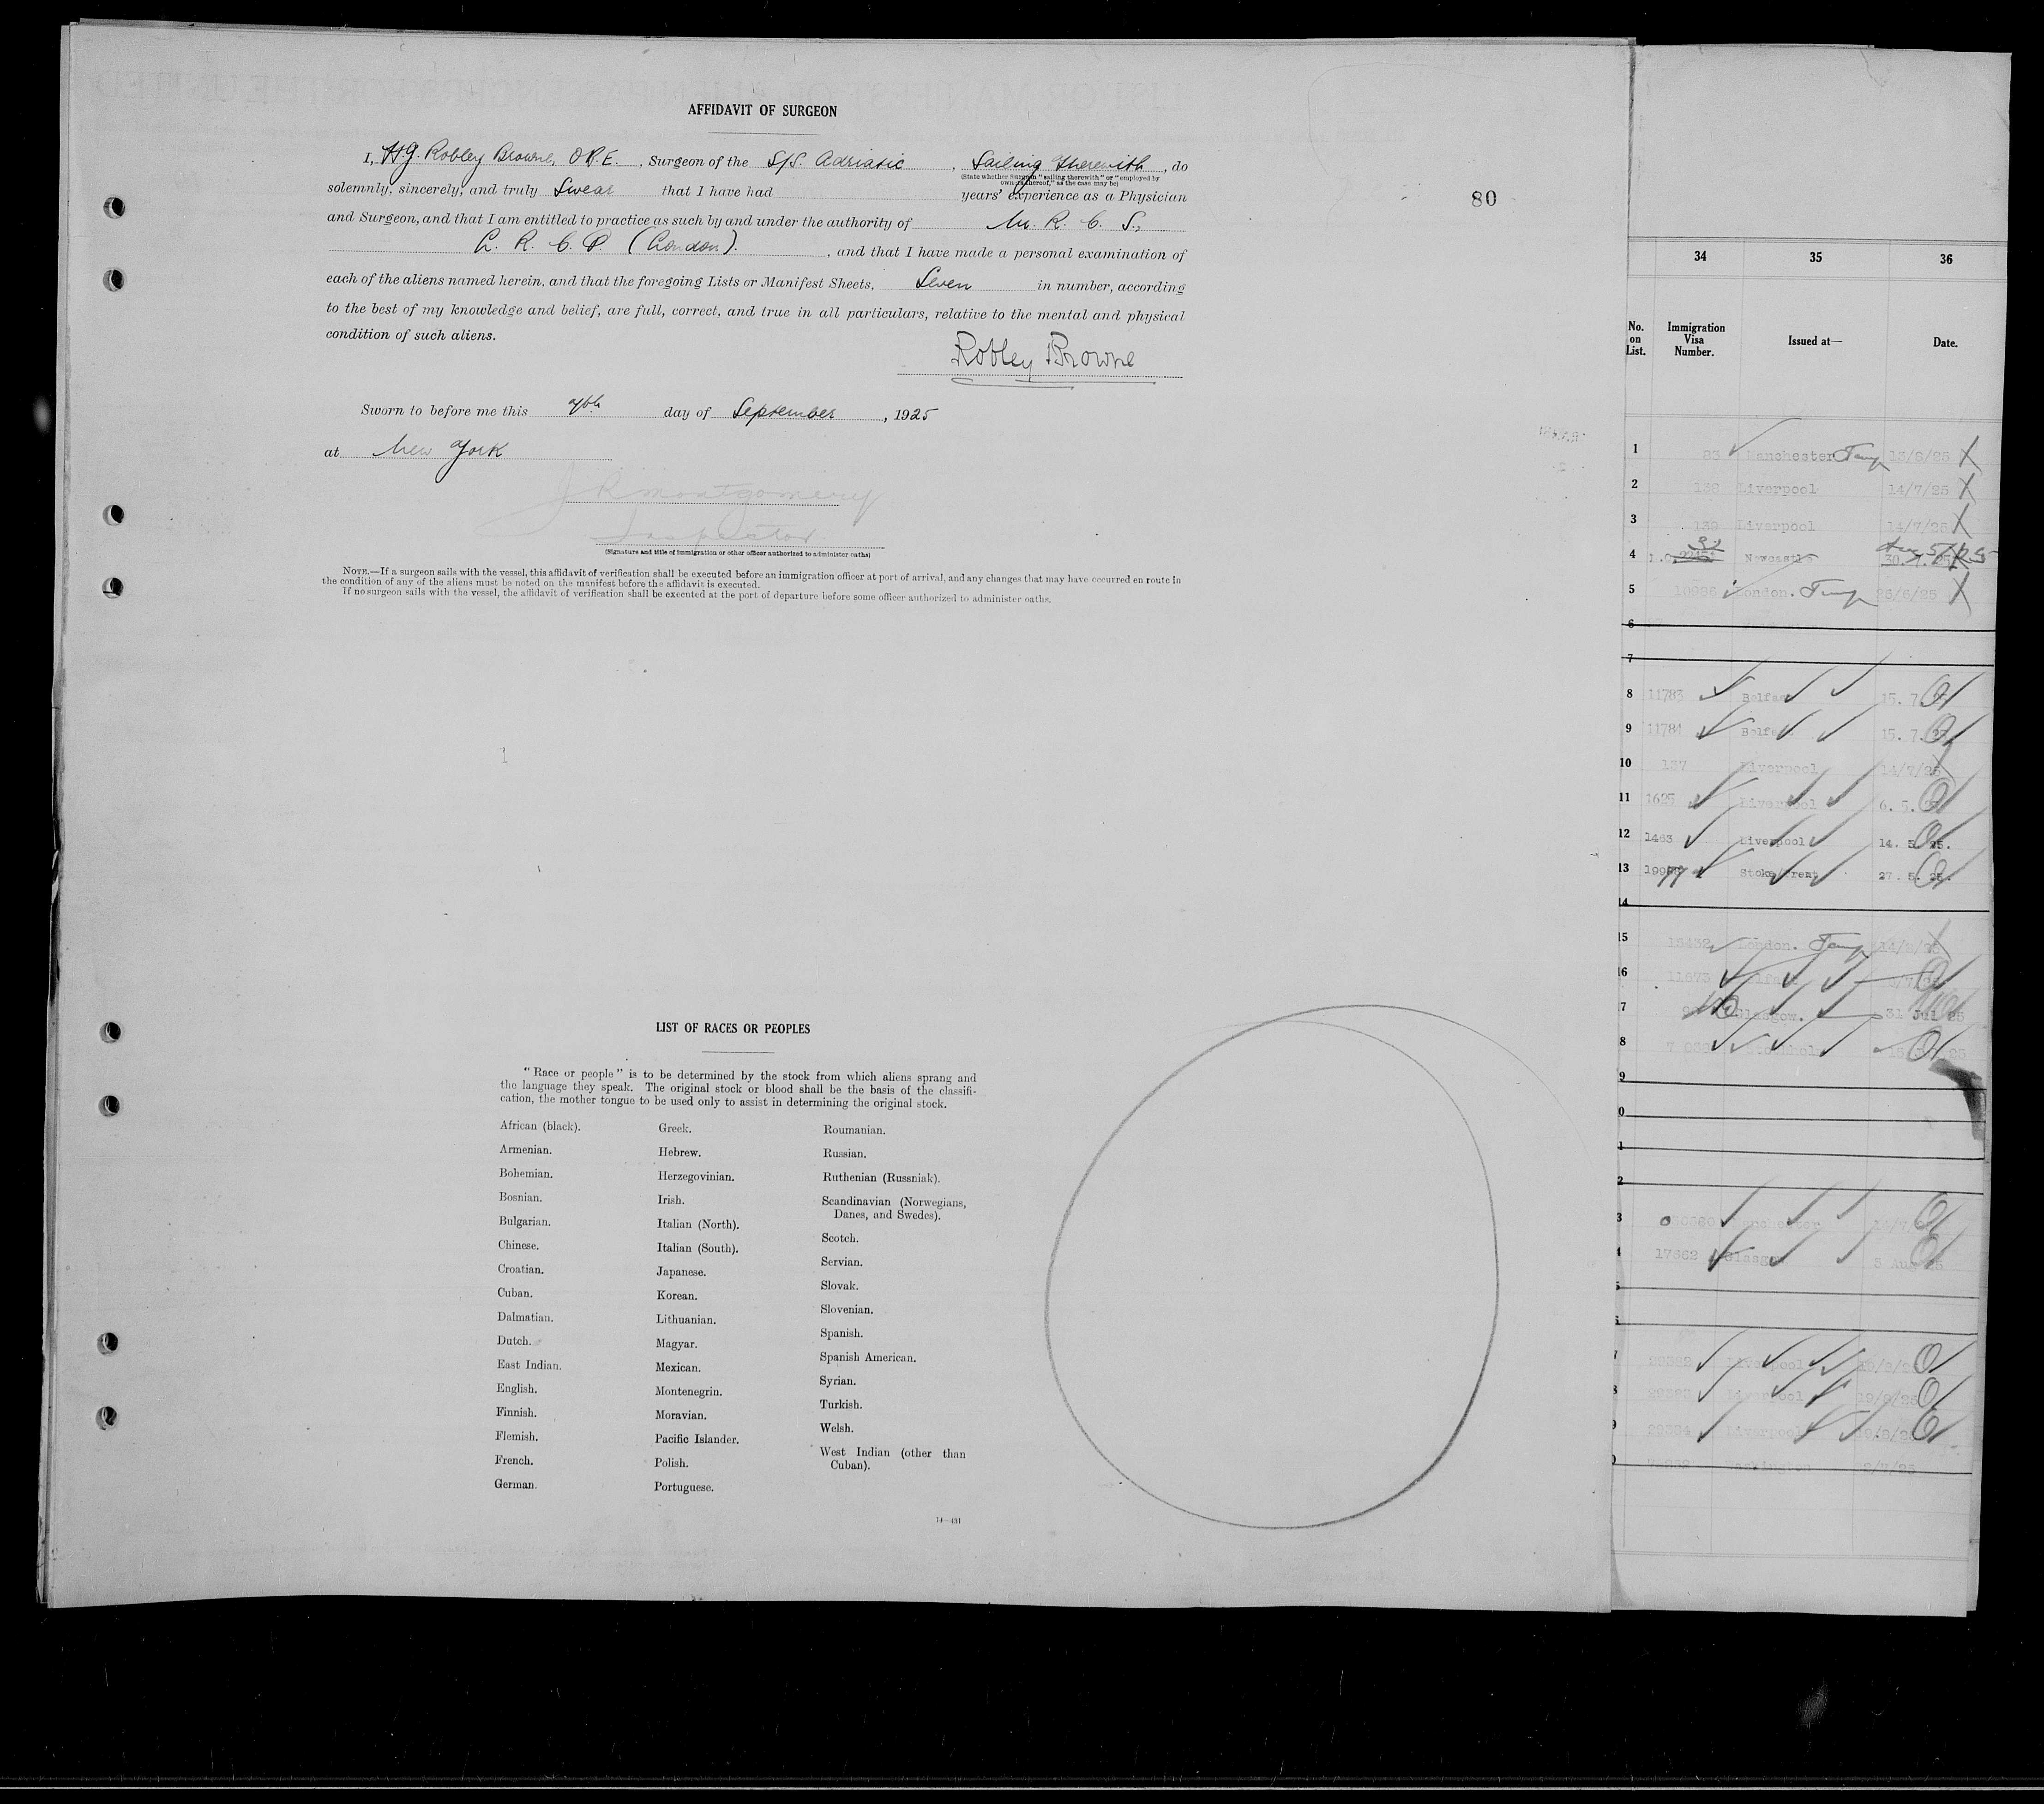 AFFIDAVIT OF SURGEON
I, H.G. Robley Browne, O.B.E. , Surgeon of the S/S. Adriatic , Sailing therewith , do
(State whether Surgeon "sailing therewith" or "employed by
owners thereof," as the case may be)
solemnly, sincerely, and truly Swear that I have had years' experience as a Physician
and Surgeon, and that I am entitled to practice as such by and under the authority of M. R. C. S.,
L. R. C. P. (London). , and that I have made a personal examination of
each of the aliens named herein, and that the foregoing Lists or Manifest Sheets, Seven in number, according
to the best of my knowledge and belief, are full, correct, and true in all particulars, relative to the mental and physical
condition of such aliens.
Robley Browne
Sworn to before me this 7th day of September , 1925
at New York
J R Montgomery
Inspector
(Signature and title of immigration or other officer authorized to administer oaths)
NOTE.—If a surgeon sails with the vessel, this affidavit of verification shall be executed before an immigration officer at port of arrival, and any changes that may have occurred en route in
the condition of any of the aliens must be noted on the manifest before the affidavit is executed.
If no surgeon sails with the vessel, the affidavit of verification shall be executed at the port of departure before some officer authorized to administer oaths.
80
LIST OF RACES OR PEOPLES
"Race or people" is to be determined by the stock from which aliens sprang and
the language they speak. The original stock or blood shall be the basis of the classifi-
cation, the mother tongue to be used only to assist in determining the original stock.
African (black).
Armenian.
Bohemian.
Bosnian.
Bulgarian.
Chinese.
Croatian.
Cuban.
Dalmatian.
Dutch.
East Indian.
English.
Finnish.
Flemish.
French.
German.
Greek.
Hebrew.
Herzegovinian.
Irish.
Italian (North).
Italian (South).
Japanese.
Korean.
Lithuanian.
Magyar.
Mexican.
Montenegrin.
Moravian.
Pacific Islander.
Polish.
Portuguese.
Roumanian.
Russian.
Ruthenian (Russniak).
Scandinavian (Norwegians,
Danes, and Swedes).
Scotch.
Servian.
Slovak.
Slovenian.
Spanish.
Spanish American.
Syrian.
Turkish.
Welsh.
West Indian (other than
Cuban).
14—491
34 35 36
No. on List. Immigration Visa Number. Issued at— Date.
1 83 Manchester Temp
2 138 Liverpool 14/7/25
3 139 Liverpool 14/7/25
4 Newcastle
5 10986 London. Temp 25/6/25
6
7
8 11783 Belfast 15. 7
9 11784 Belfast 15. 7.
10 137 Liverpool 14/7/25
11 1625 Liverpool 6. 5.
12 1463 Liverpool 14. 5. 25.
13 Stoke/Trent 27. 5. 25.
14
15 London. Temp
16 Belfast
7 Glasgow. 31 Jul 25
8
9
0
1
2
3 Manchester
4 17662 Glasgow 5 Aug 25
5
6
7 Liverpool
8 Liverpool 19/8/25
9 Liverpool
0 Washington